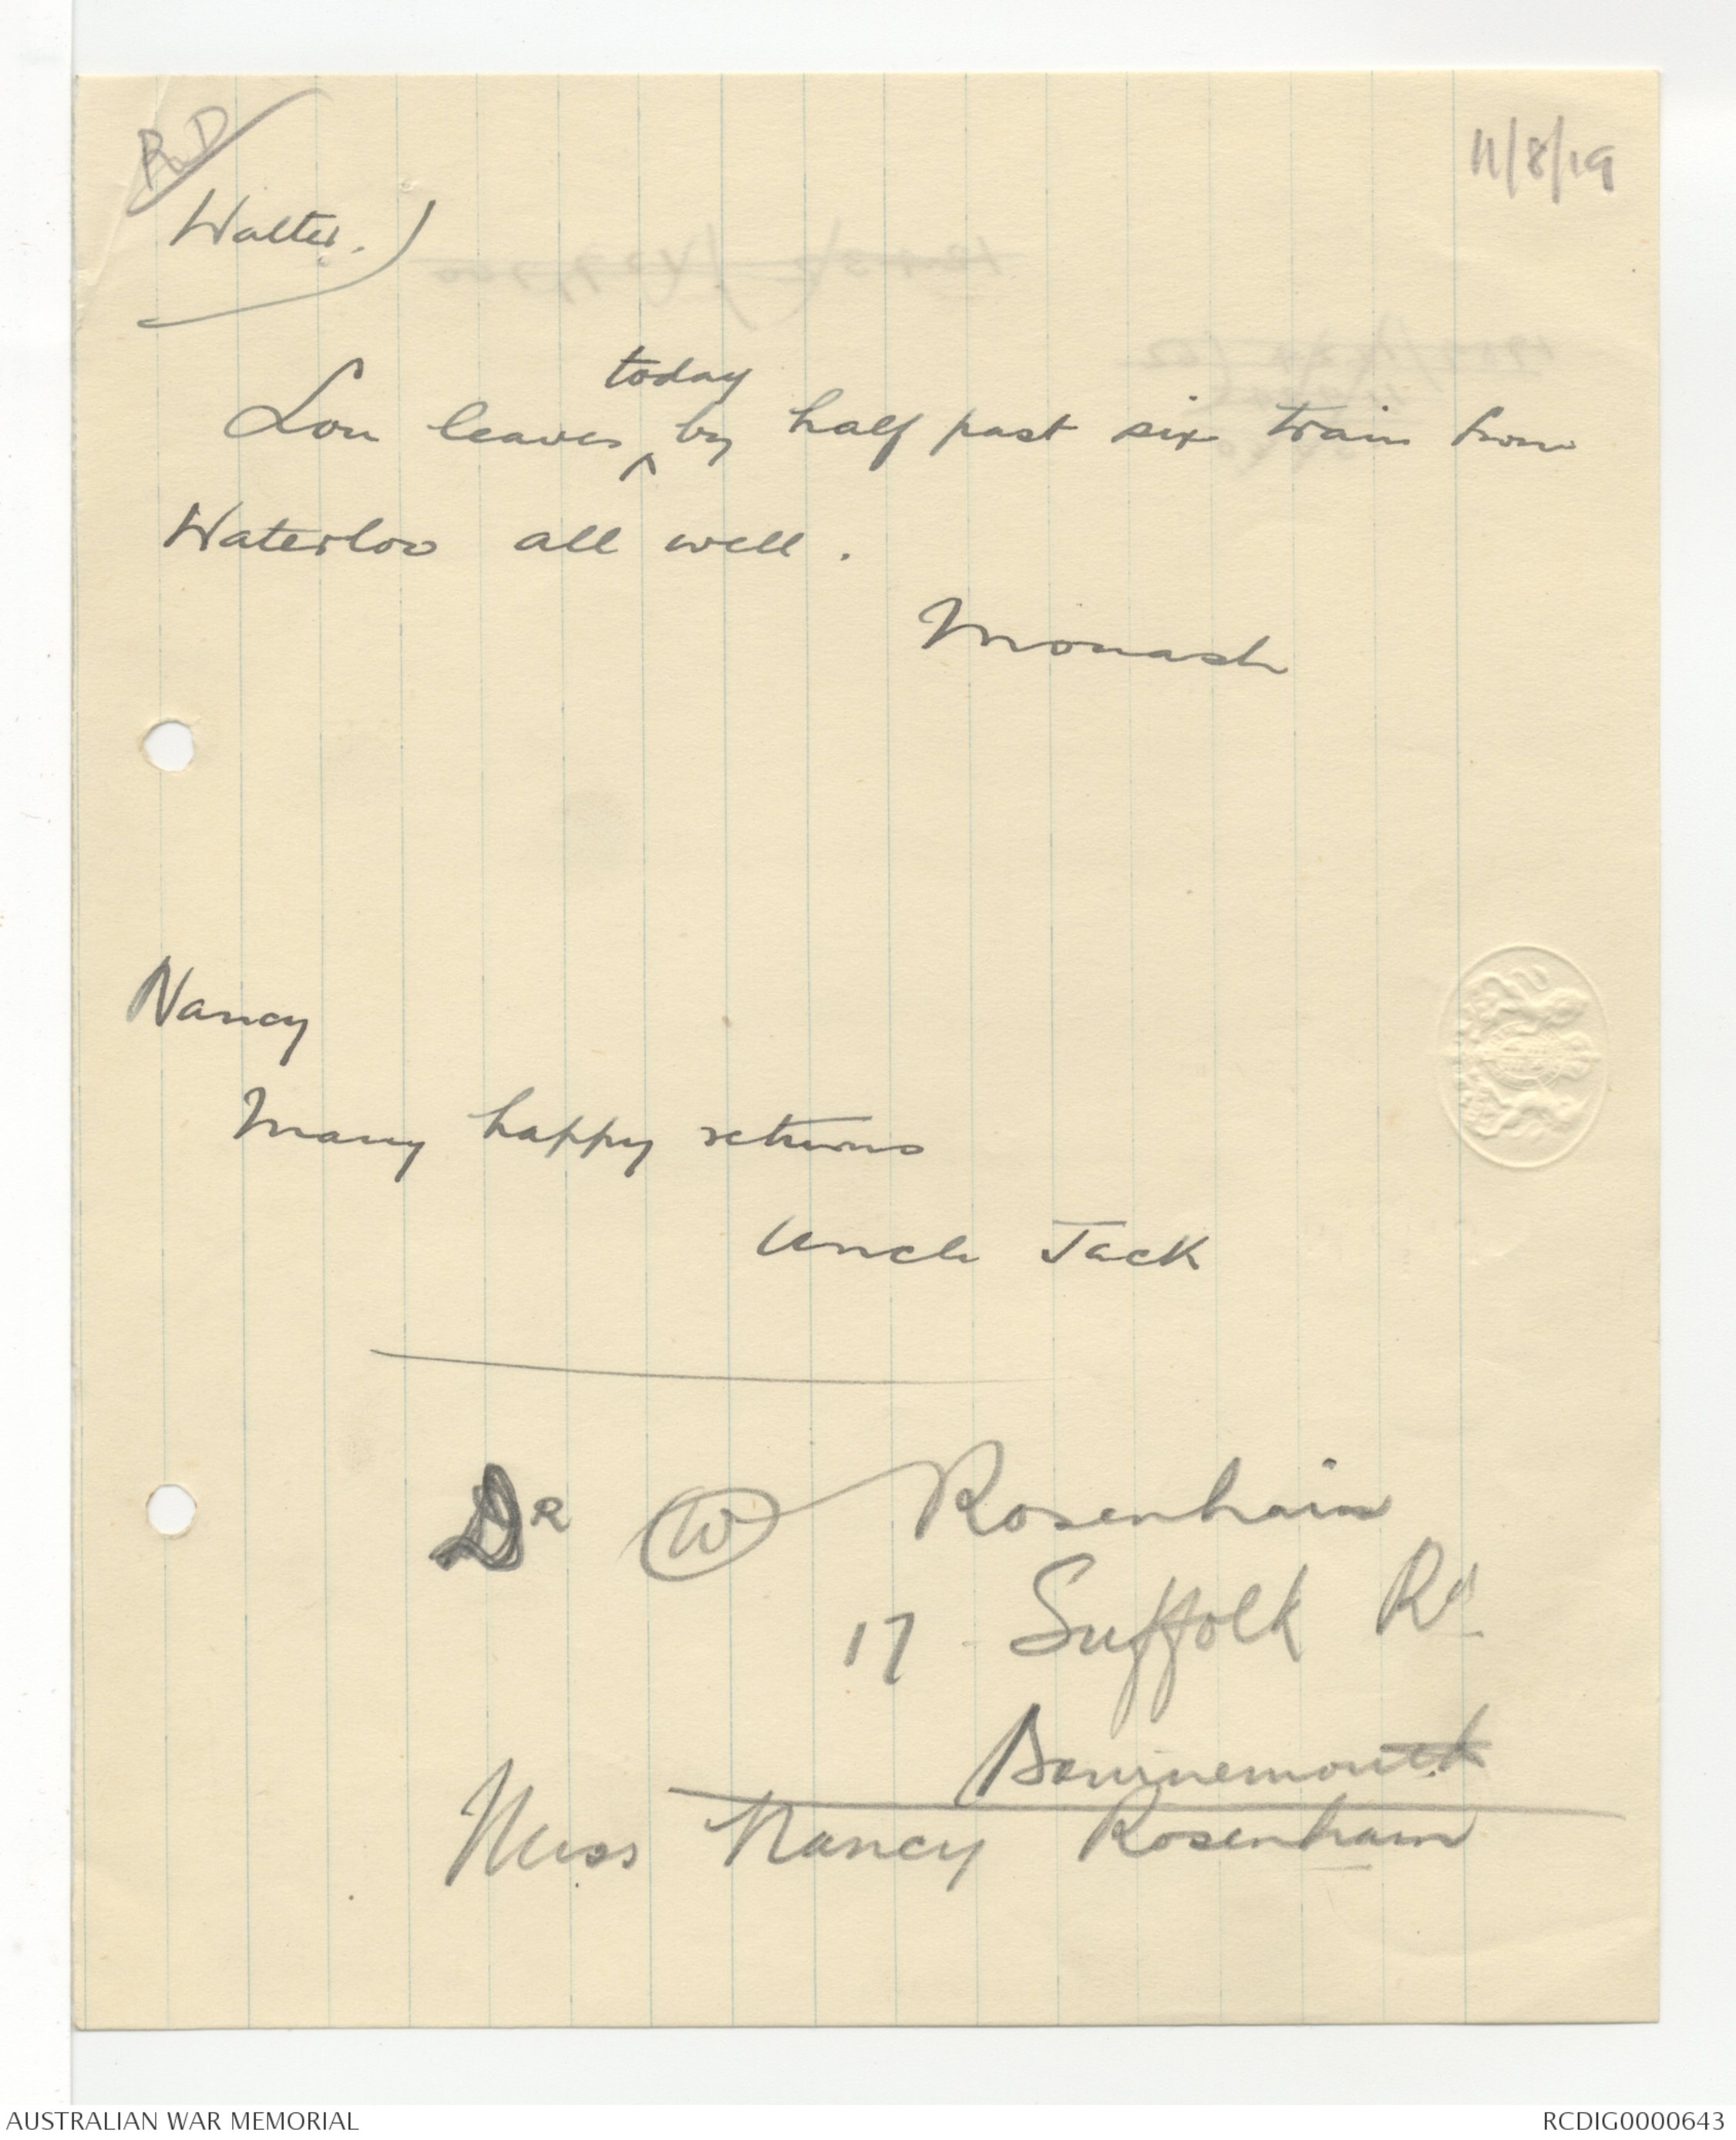 RD
11/8/19
Walter.
today
Lou leaves ^ by half past six train from
Waterloo all well.
Monash
Nancy
Many happy returns
Uncle Jack
DR W Rosenhain
17 Suffolk Rd
Bournemouth
Miss Nancy Rosenhain
AUSTRALIAN WAR MEMORIAL
RCDIG0000643